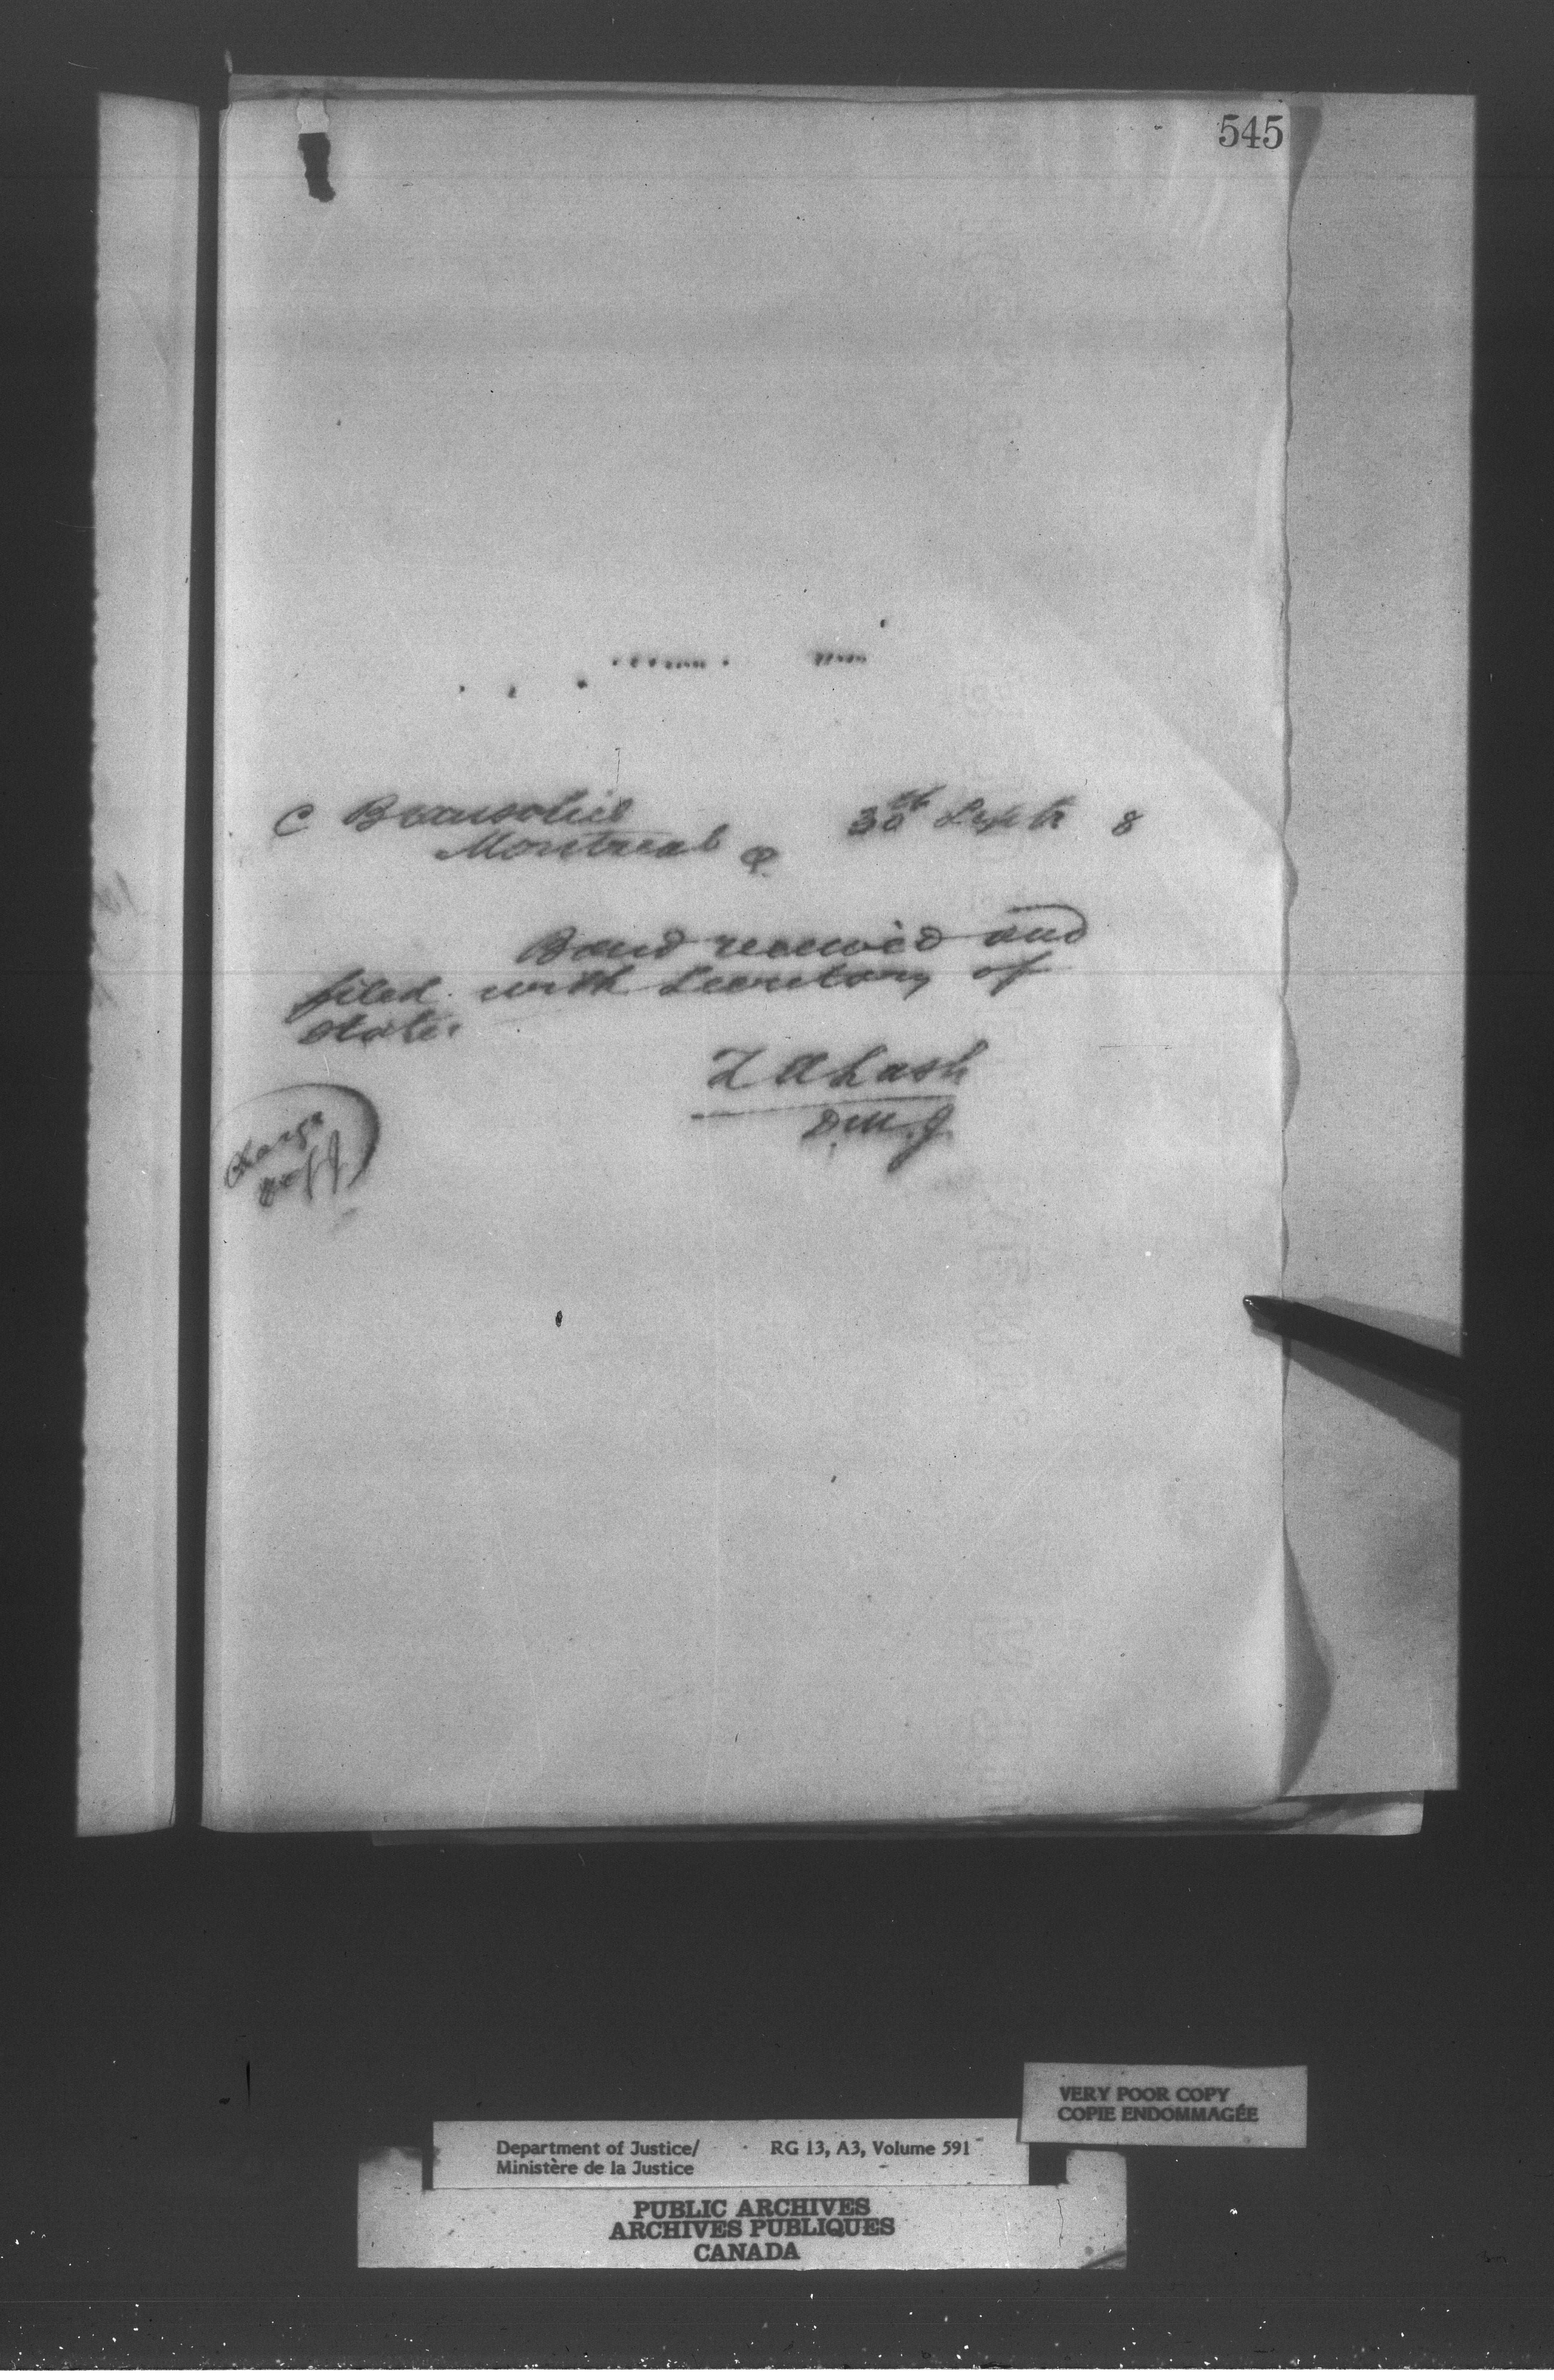 545
C Beausoleil 30th Septr 8
Montreal Q.
Bond received and
filed with Secretary of
State.
Z A Lash
D.M.J.
Charge
Dept J
VERY POOR COPY
COPIE ENDOMMAGÉE
Department of Justice/ RG 13, A3, Volume 591
Ministère de la Justice
PUBLIC ARCHIVES
ARCHIVES PUBLIQUES
CANADA